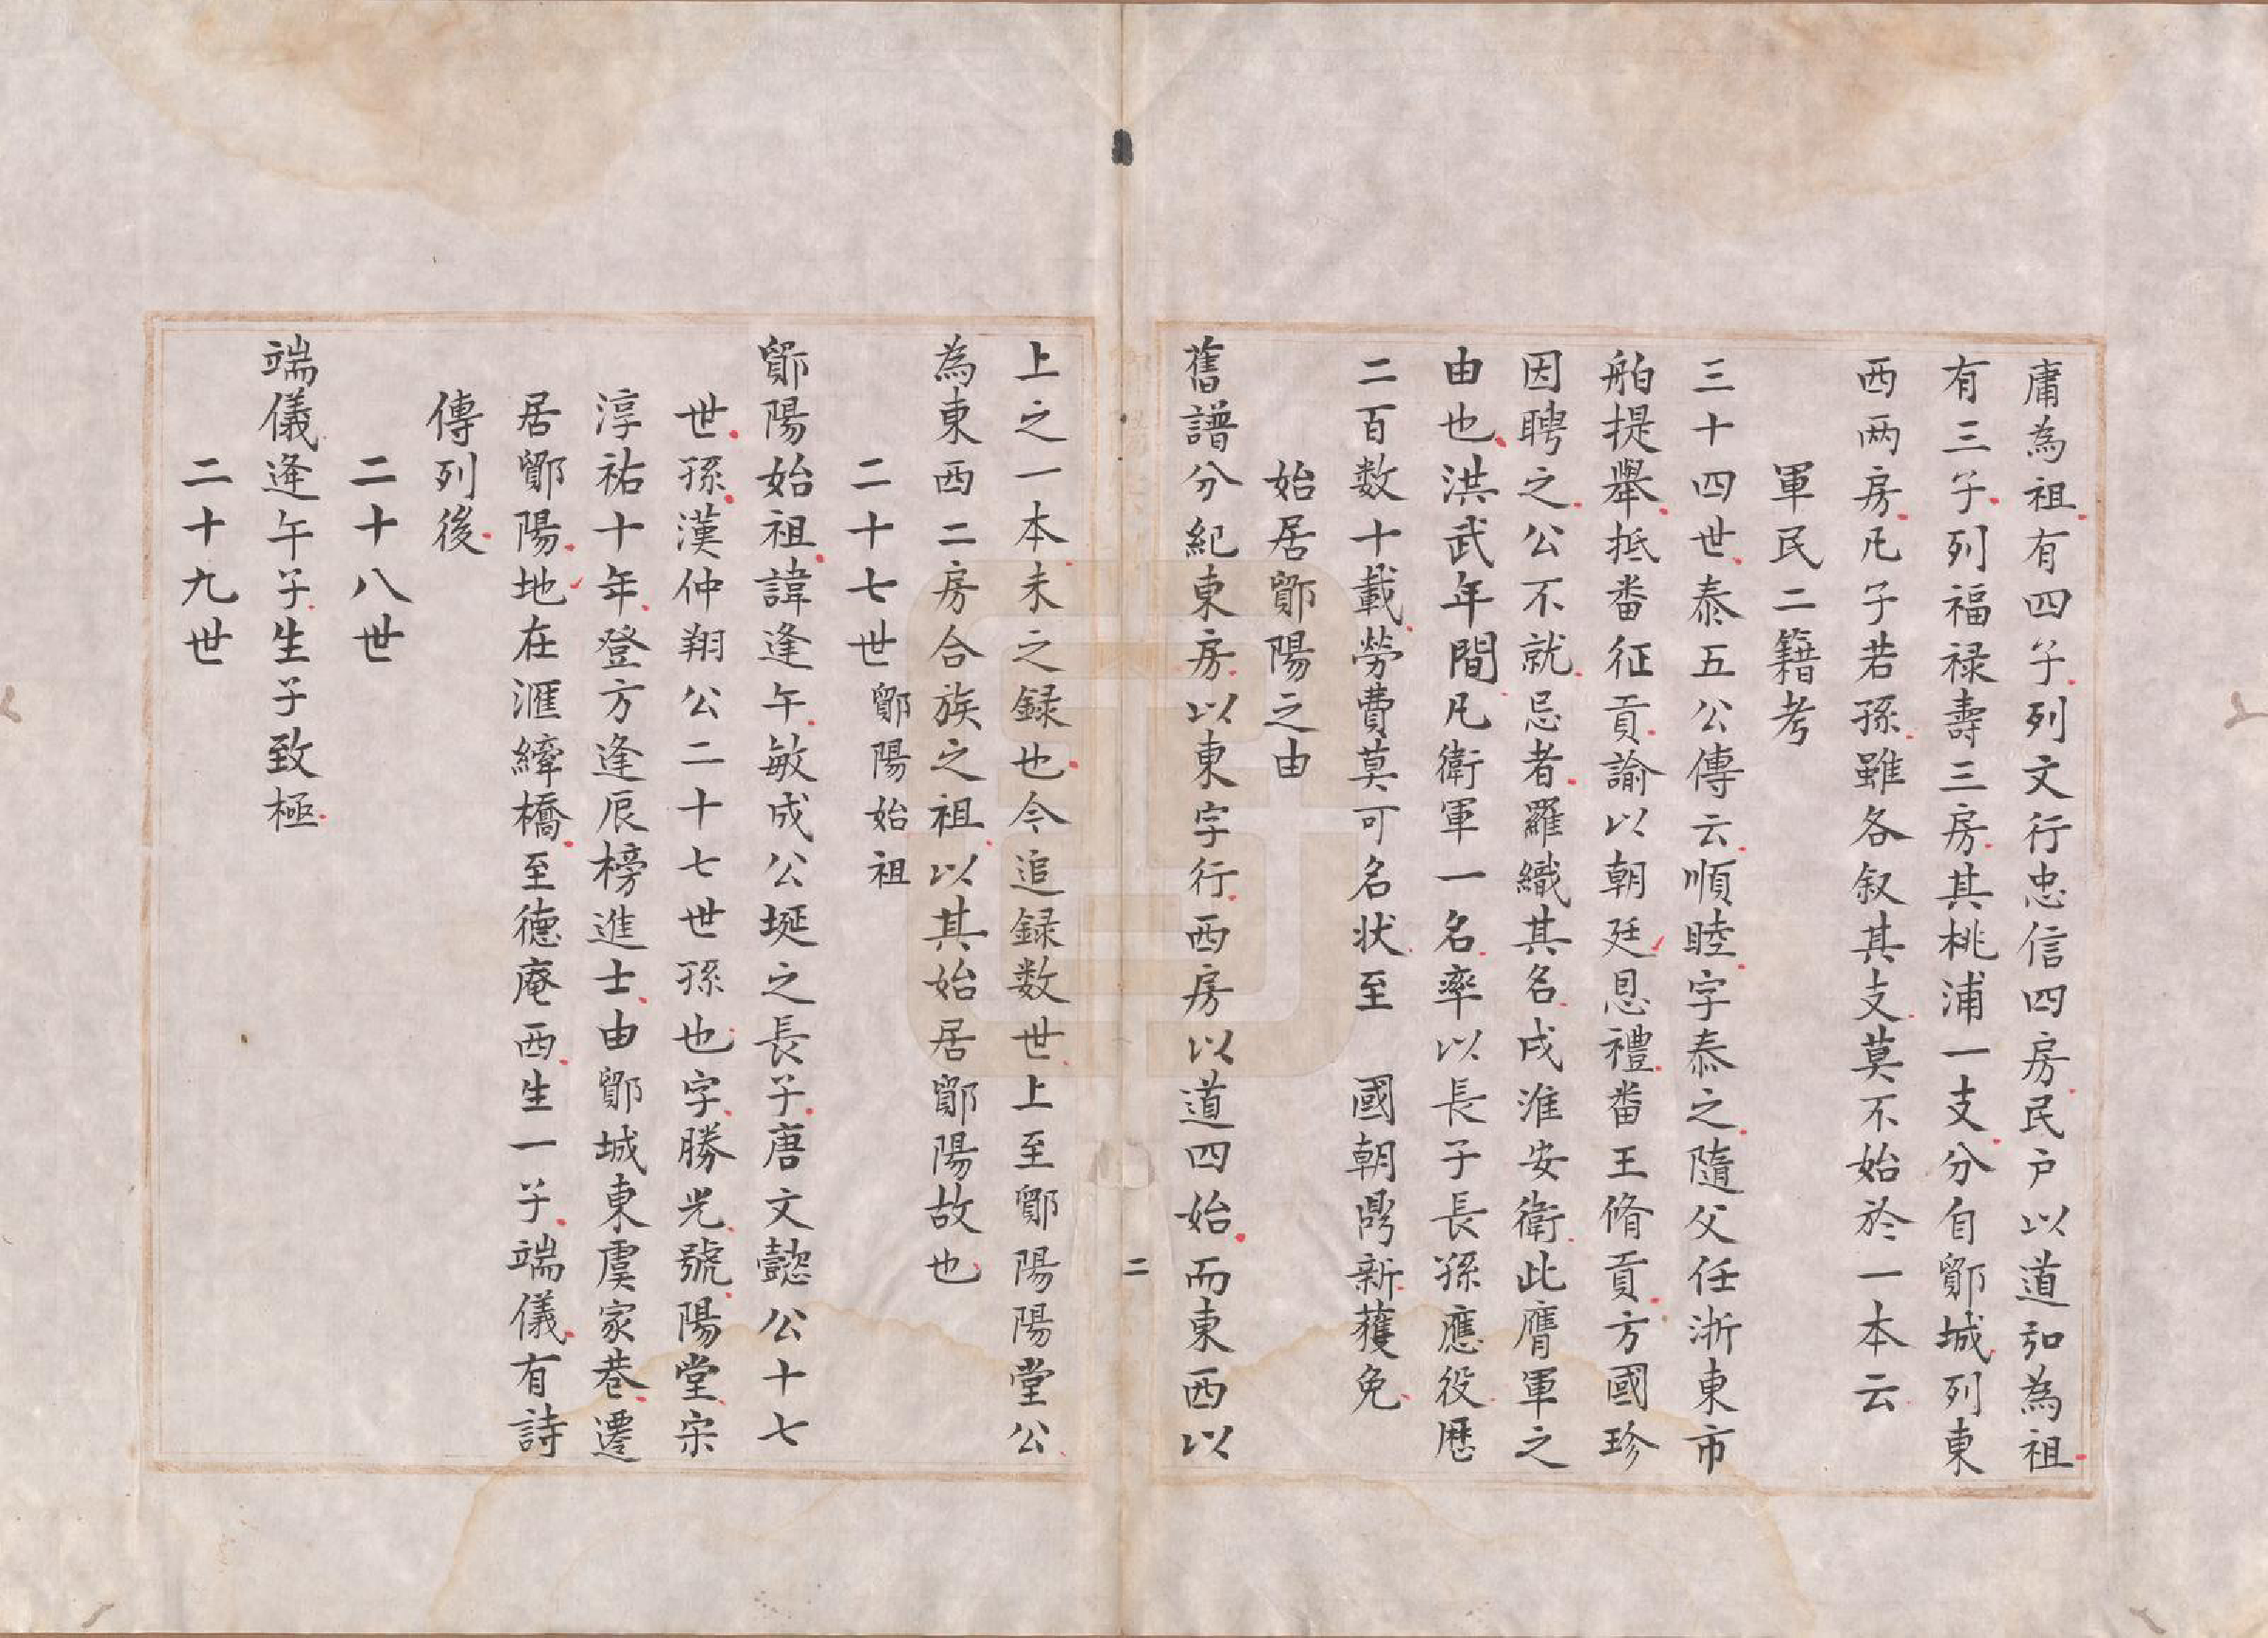 庸為祖有四子列文行忠信四房民户以道弘為祖
有三子列福禄壽三房其桃浦一支分自鄮城列東
西两房凡子若孫雖各叙其支莫不始於一本云
軍民二籍考
三十四世泰五公傳云順睦字泰之隨父任浙東市
舶提舉抵畨征貢諭以朝廷恩禮畨王脩貢方國珍
因聘之公不就忌者羅織其名戍淮安衛此膺軍之
由也洪武年間凡衛軍一名率以長子長孫應役歷
二百数十載勞費莫可名状至　國朝鼎新獲免
始居鄮陽之由
舊譜分紀東房以東字行西房以道四始而東西以
上之一本未之録也今追録数世上至鄮陽陽堂公
為東西二房合族之祖以其始居鄮陽故也
二十七世鄮陽始祖
鄮陽始祖諱逢午敏成公埏之長子唐文懿公十七
世孫漢仲翔公二十七世孫也字勝光號陽堂宋
淳祐十年登方逢辰榜進士由鄮城東虞家巷遷
居鄮陽地在滙繂橋至德庵西生一子端儀有詩
傳列後
二十八世
端儀逢午子生子致極
二十九世
二